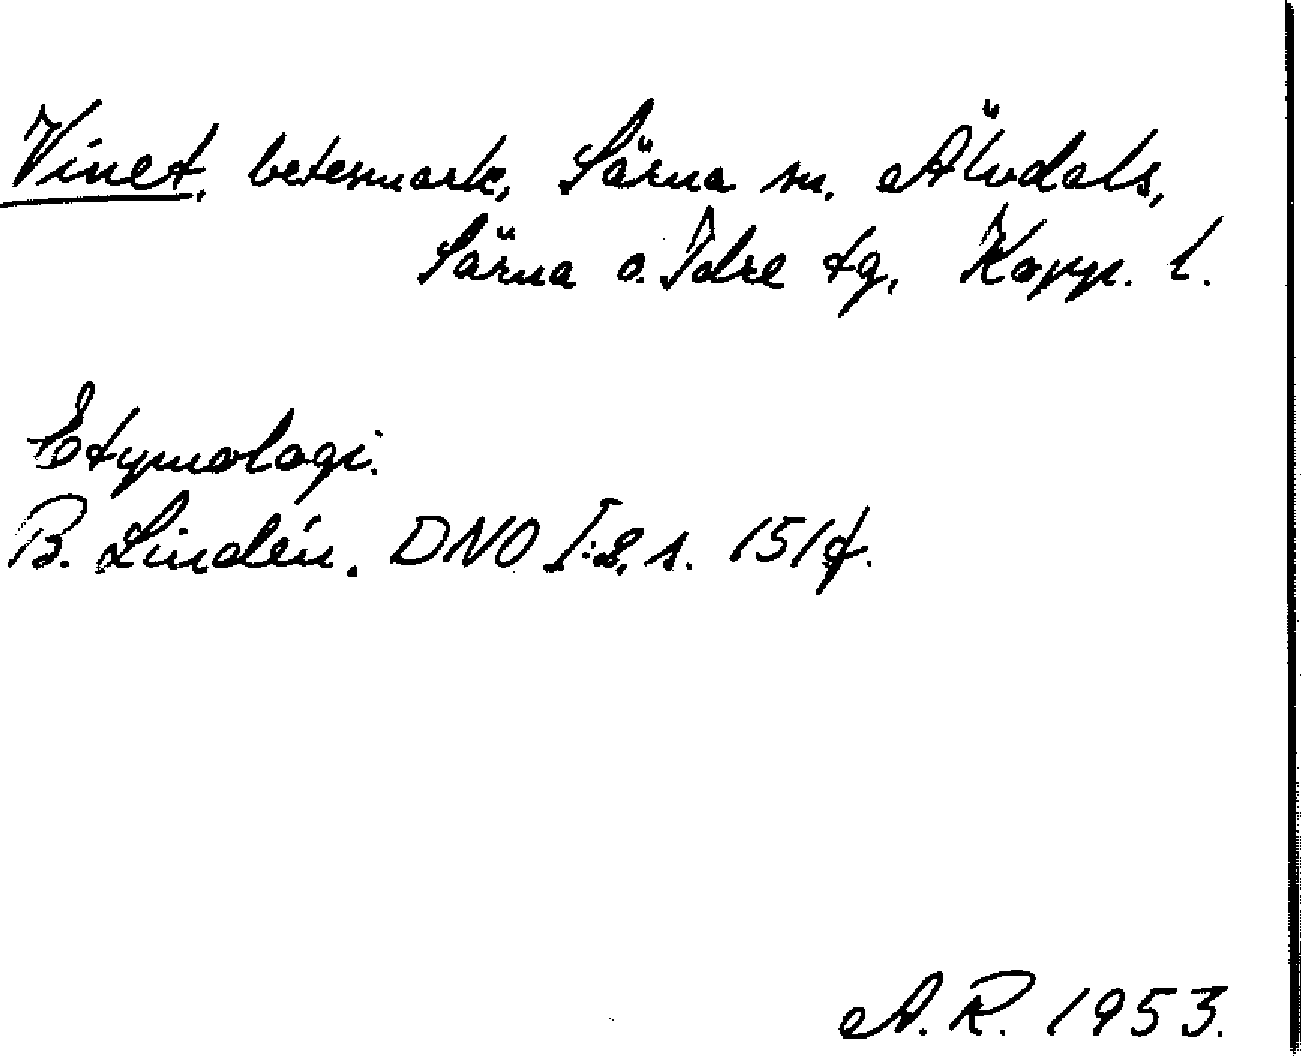 Vinet, betesmark, Särna sn. Älvdals,
Särna o. Idre tg, Kopp. l.
Etymologi.
B. Lindén, DNO I:2, s. 151f.
A. R. 1953.